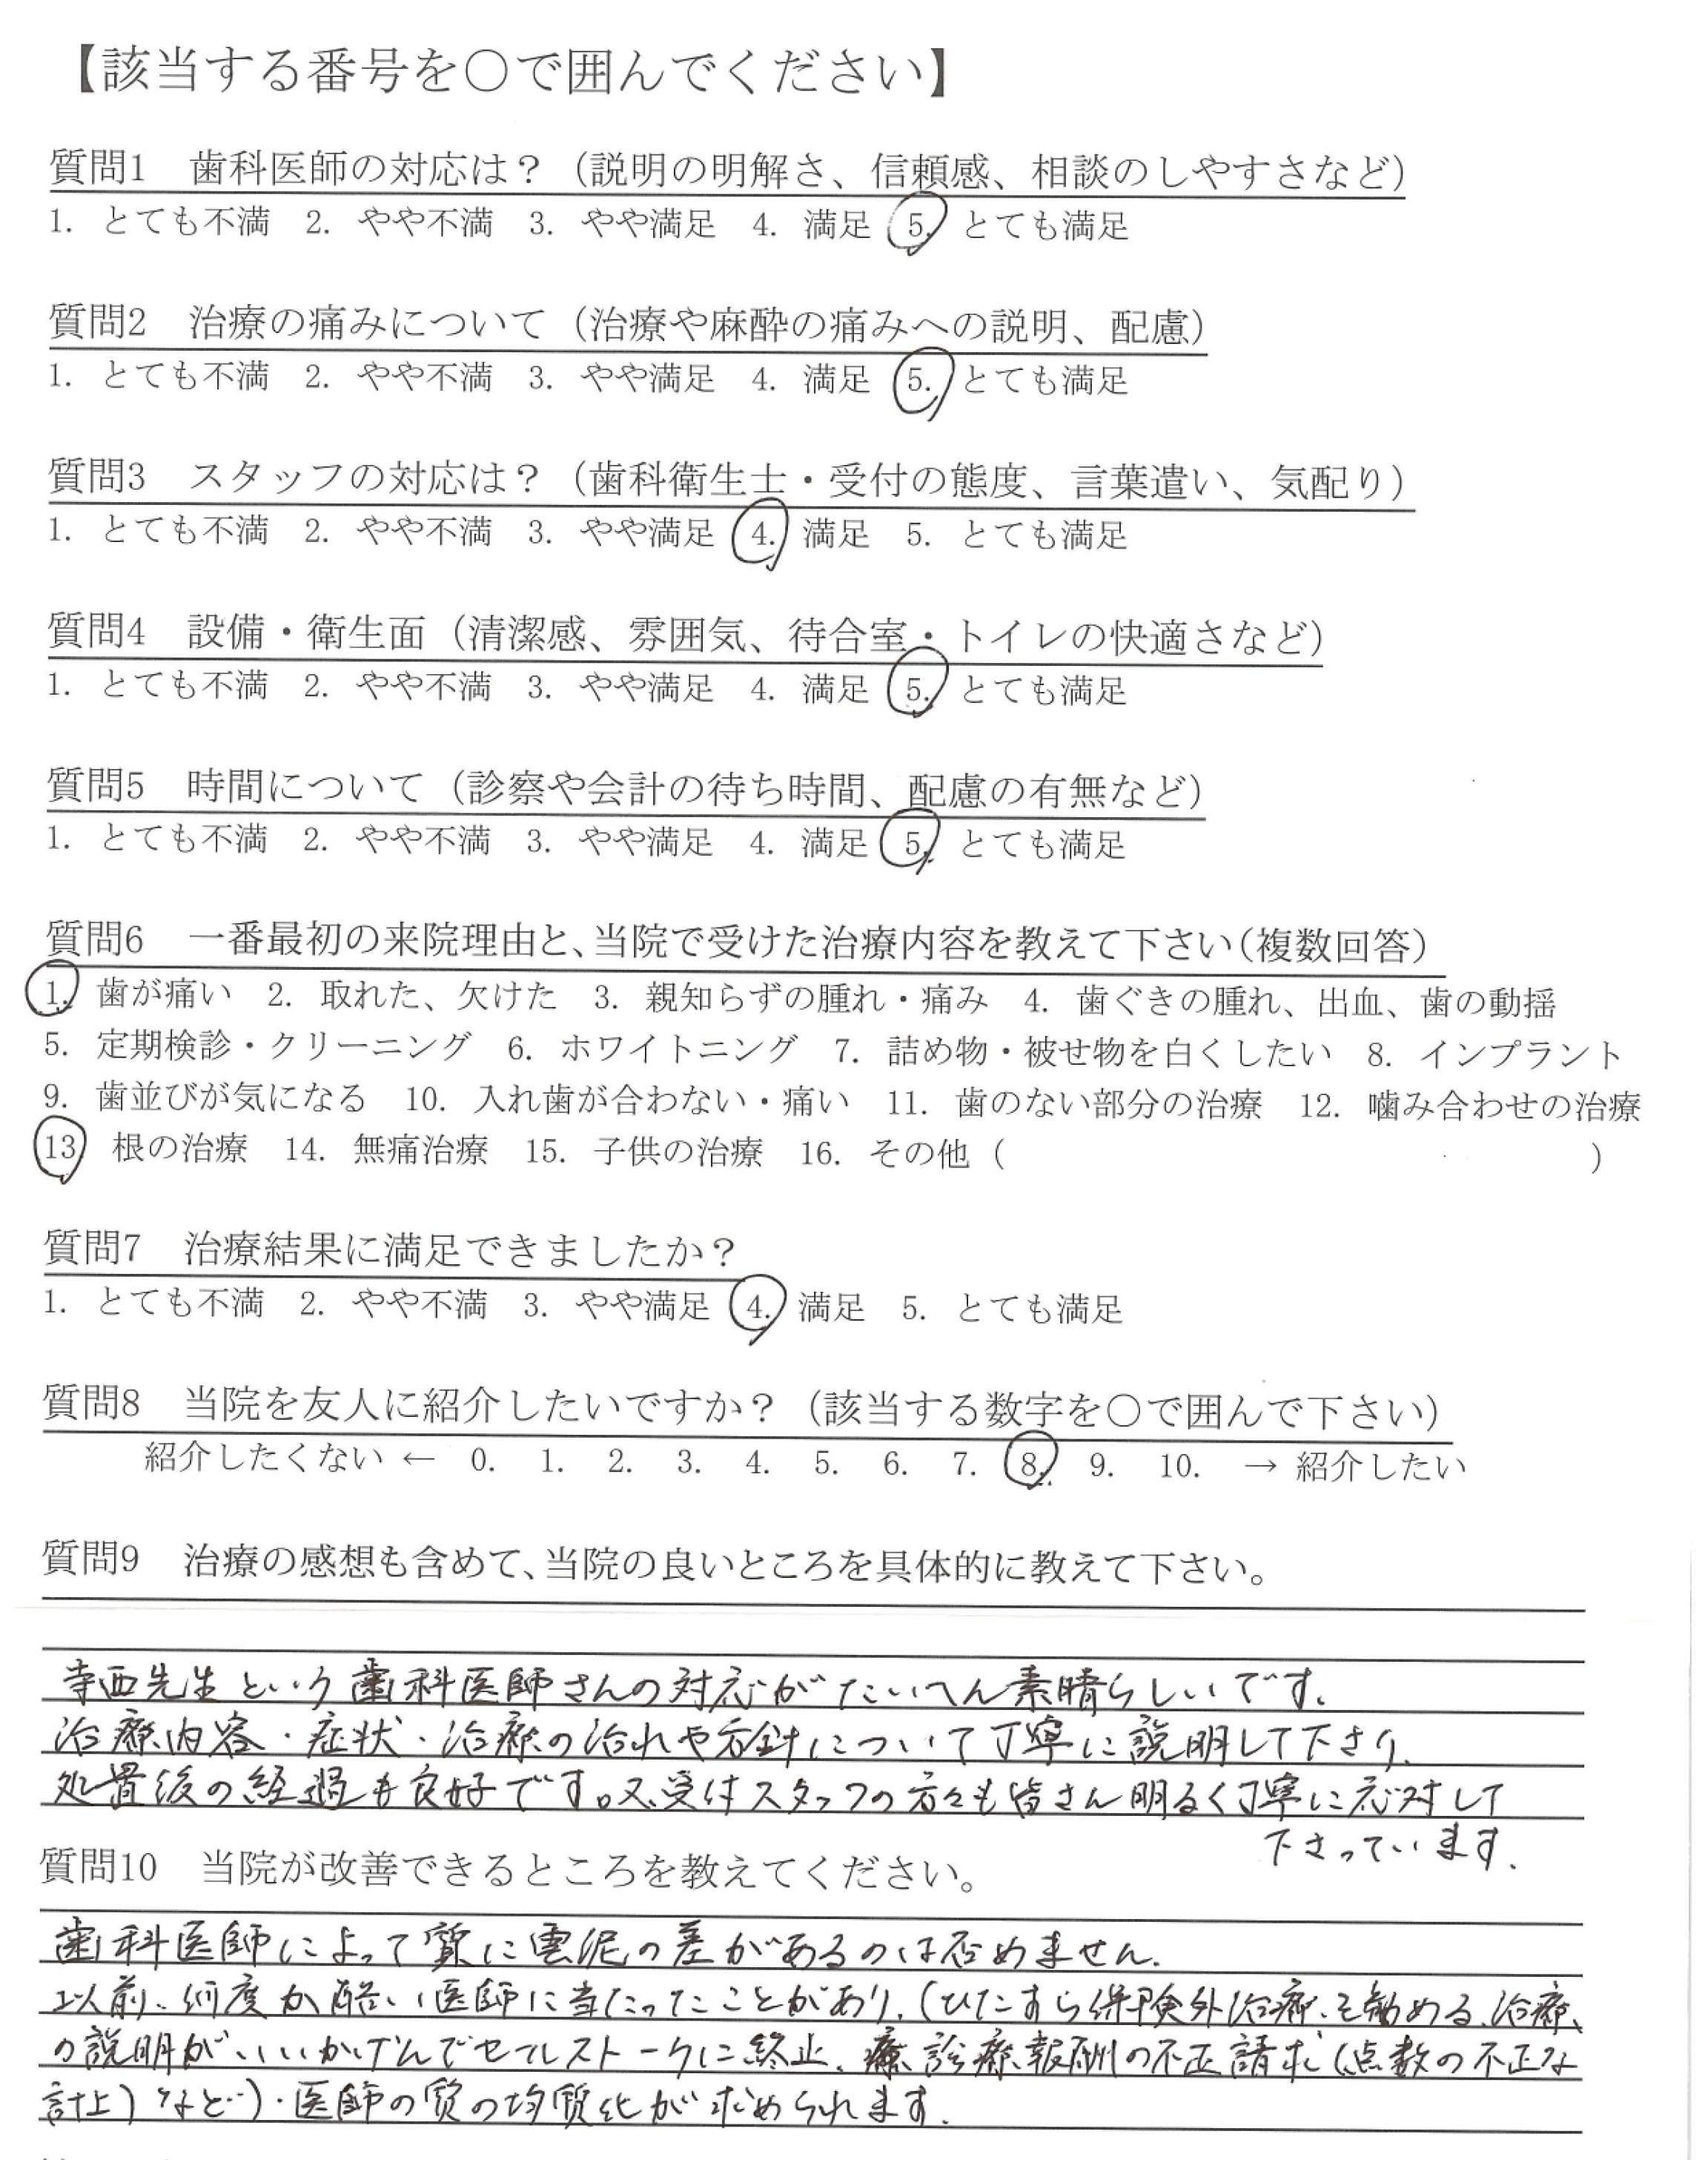 【該当する番号を○で囲んでください】
質問1　歯科医師の対応は？（説明の明解さ、信頼感、相談のしやすさなど）
1. とても不満　2. やや不満　3. やや満足　4. 満足　5. とても満足
質問2　治療の痛みについて（治療や麻酔の痛みへの説明、配慮）
1. とても不満　2. やや不満　3. やや満足　4. 満足　5. とても満足
質問3　スタッフの対応は？（歯科衛生士・受付の態度、言葉遣い、気配り）
1. とても不満　2. やや不満　3. やや満足　4. 満足　5. とても満足
質問4　設備・衛生面（清潔感、雰囲気、待合室・トイレの快適さなど）
1. とても不満　2. やや不満　3. やや満足　4. 満足　5. とても満足
質問5　時間について（診察や会計の待ち時間、配慮の有無など）
1. とても不満　2. やや不満　3. やや満足　4. 満足　5. とても満足
質問6　一番最初の来院理由と、当院で受けた治療内容を教えて下さい（複数回答）
1. 歯が痛い　2. 取れた、欠けた　3. 親知らずの腫れ・痛み　4. 歯ぐきの腫れ、出血、歯の動揺
5. 定期検診・クリーニング　6. ホワイトニング　7. 詰め物・被せ物を白くしたい　8. インプラント
9. 歯並びが気になる　10. 入れ歯が合わない・痛い　11. 歯のない部分の治療　12. 噛み合わせの治療
13 根の治療　14. 無痛治療　15. 子供の治療　16. その他（　　　）
質問7　治療結果に満足できましたか？
1. とても不満　2. やや不満　3. やや満足　4. 満足　5. とても満足
質問8　当院を友人に紹介したいですか？（該当する数字を○で囲んで下さい）
紹介したくない ← 0. 1. 2. 3. 4. 5. 6. 7. 8. 9. 10. → 紹介したい
質問9　治療の感想も含めて、当院の良いところを具体的に教えて下さい。
寺西先生という歯科医師さんの対応がたいへん素晴らしいです。
治療内容・症状・治療の流れや方針について丁寧に説明して下さり、
処置後の経過も良好です。又、受付スタッフの方々も皆さん明るく丁寧に応対して
下さっています。
質問10　当院が改善できるところを教えてください。
歯科医師によって質に雲泥の差があるのは否めません。
以前、何度か酷い医師に当たったことがあり、（ひたすら保険外治療を勧める、治療
の説明がいいかげんでセールストークに終止、診療報酬の不正請求（点数の不正な
計上）など）・医師の質の均質化が求められます。